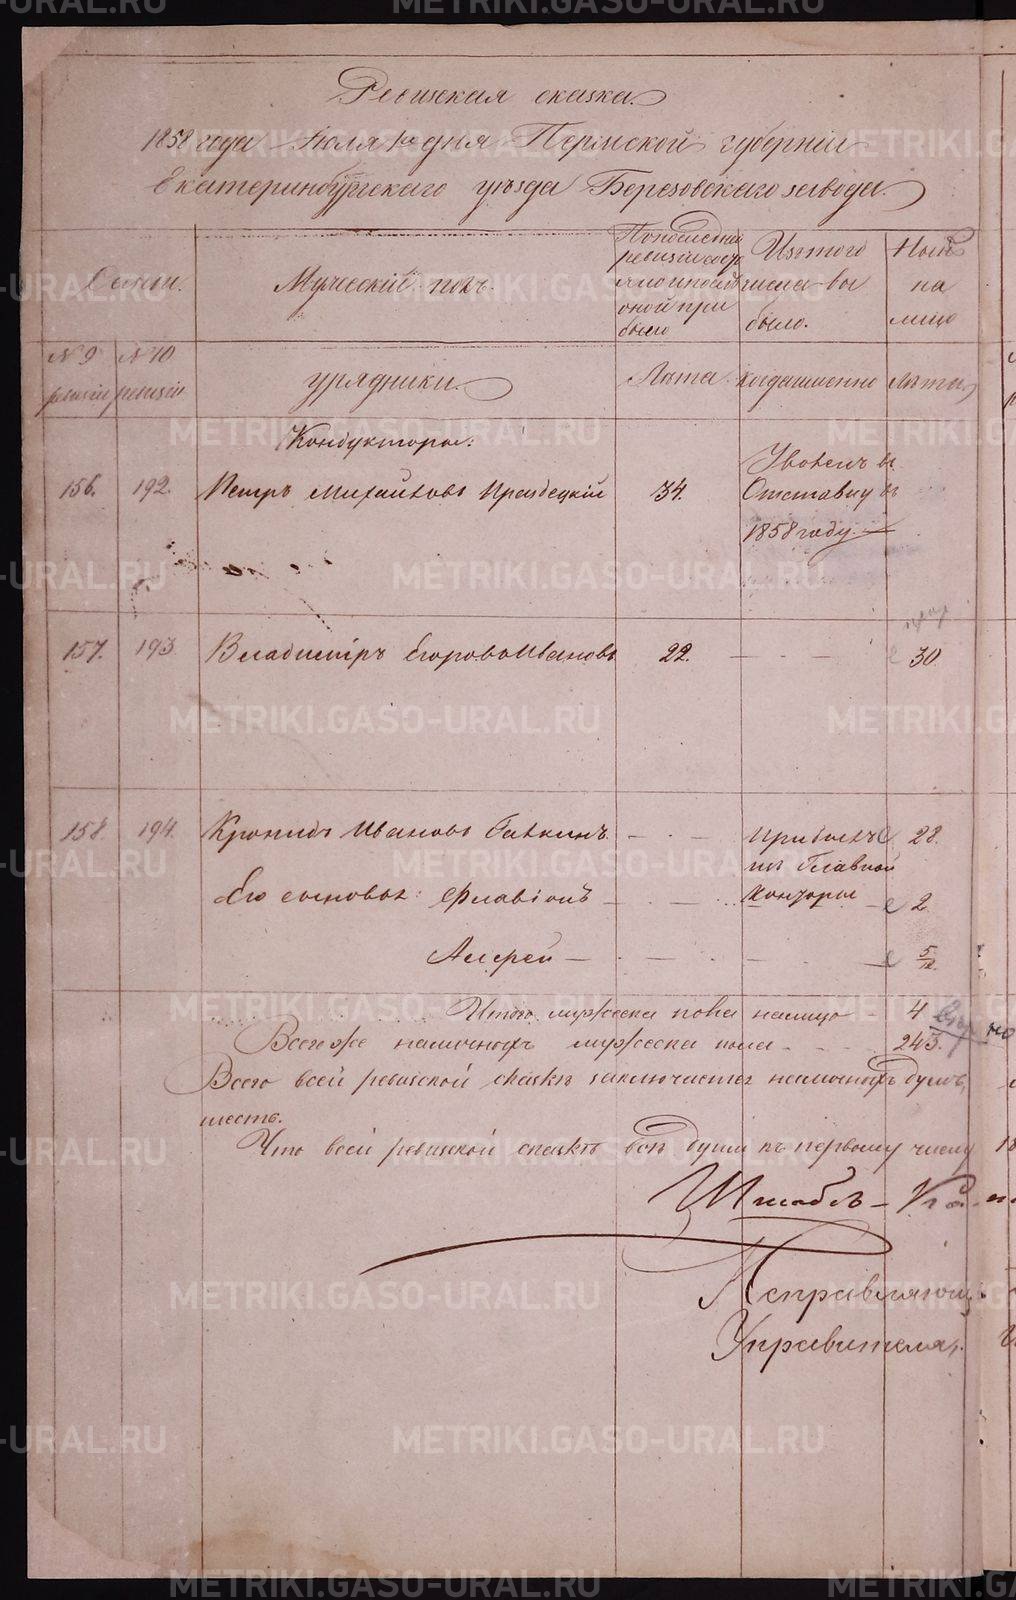 Ревизская сказка.
1858 года Июля 1го дня Пермской губернiи
Екатеринбургскаго уѣзда Березовскаго завода.
Семьи.
Мужескiй полъ.
По последней ревизiи состояло и после оной прибыло
Изъ того числа выбыло.
Ныне на лицо
№ 9 ревизiи
№ 10 ревизiи
урядники.
Лѣта
когда именно
Лѣта.
Кондукторы:
156. 192. Петръ Михайловъ 34. Уволенъ въ Отставку въ 1858 году.
157. 193. Владимiръ Егоровъ Ивановъ 22. — — — 30
158. 194. Кронидъ Ивановъ Галкинъ — - — Прибылъ изъ Главной Конторы 28.
Его сыновья: Флавiонъ 2
Андрей — 5/12.
Итого мужеска пола налицо 4
Всего же наличныхъ мужеска пола 243.
Всего всей ревизской сказкѣ заключается наличныхъ душъ,
шесть.
Что всей ревизской сказкѣ всѣ души къ первому числу 18
Штабсъ-Ка
Исправляющ
Управителя
METRIKI.GASO-URAL.RU